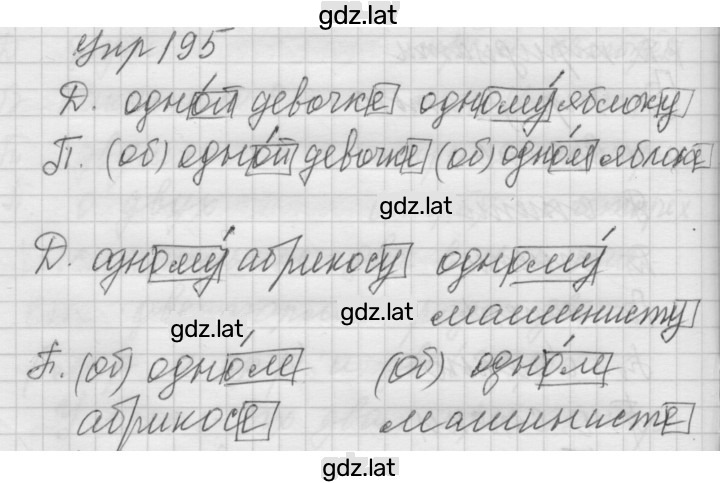 gdz.lat
Упр 195
Д. одной девочке одному яблоку
П. (об) одной девочке (об) одном яблоке
gdz.lat
Д. одному абрикосу одному
машинисту
gdz.lat gdz.lat
П. (об) одном (об) одном
абрикосе машинисте
gdz.lat